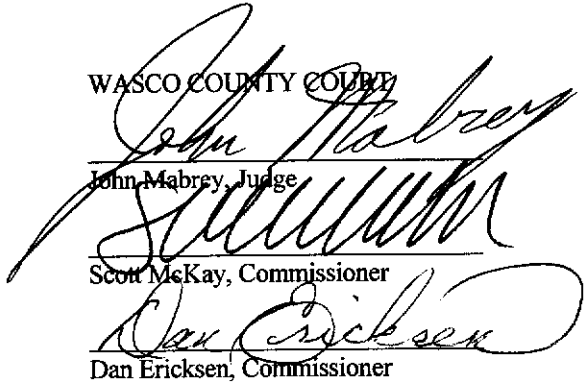 WASCO COUNTY COURT
John Mabrey
John Mabrey, Judge
Scott McKay, Commissioner
Dan Ericksen
Dan Ericksen, Commissioner